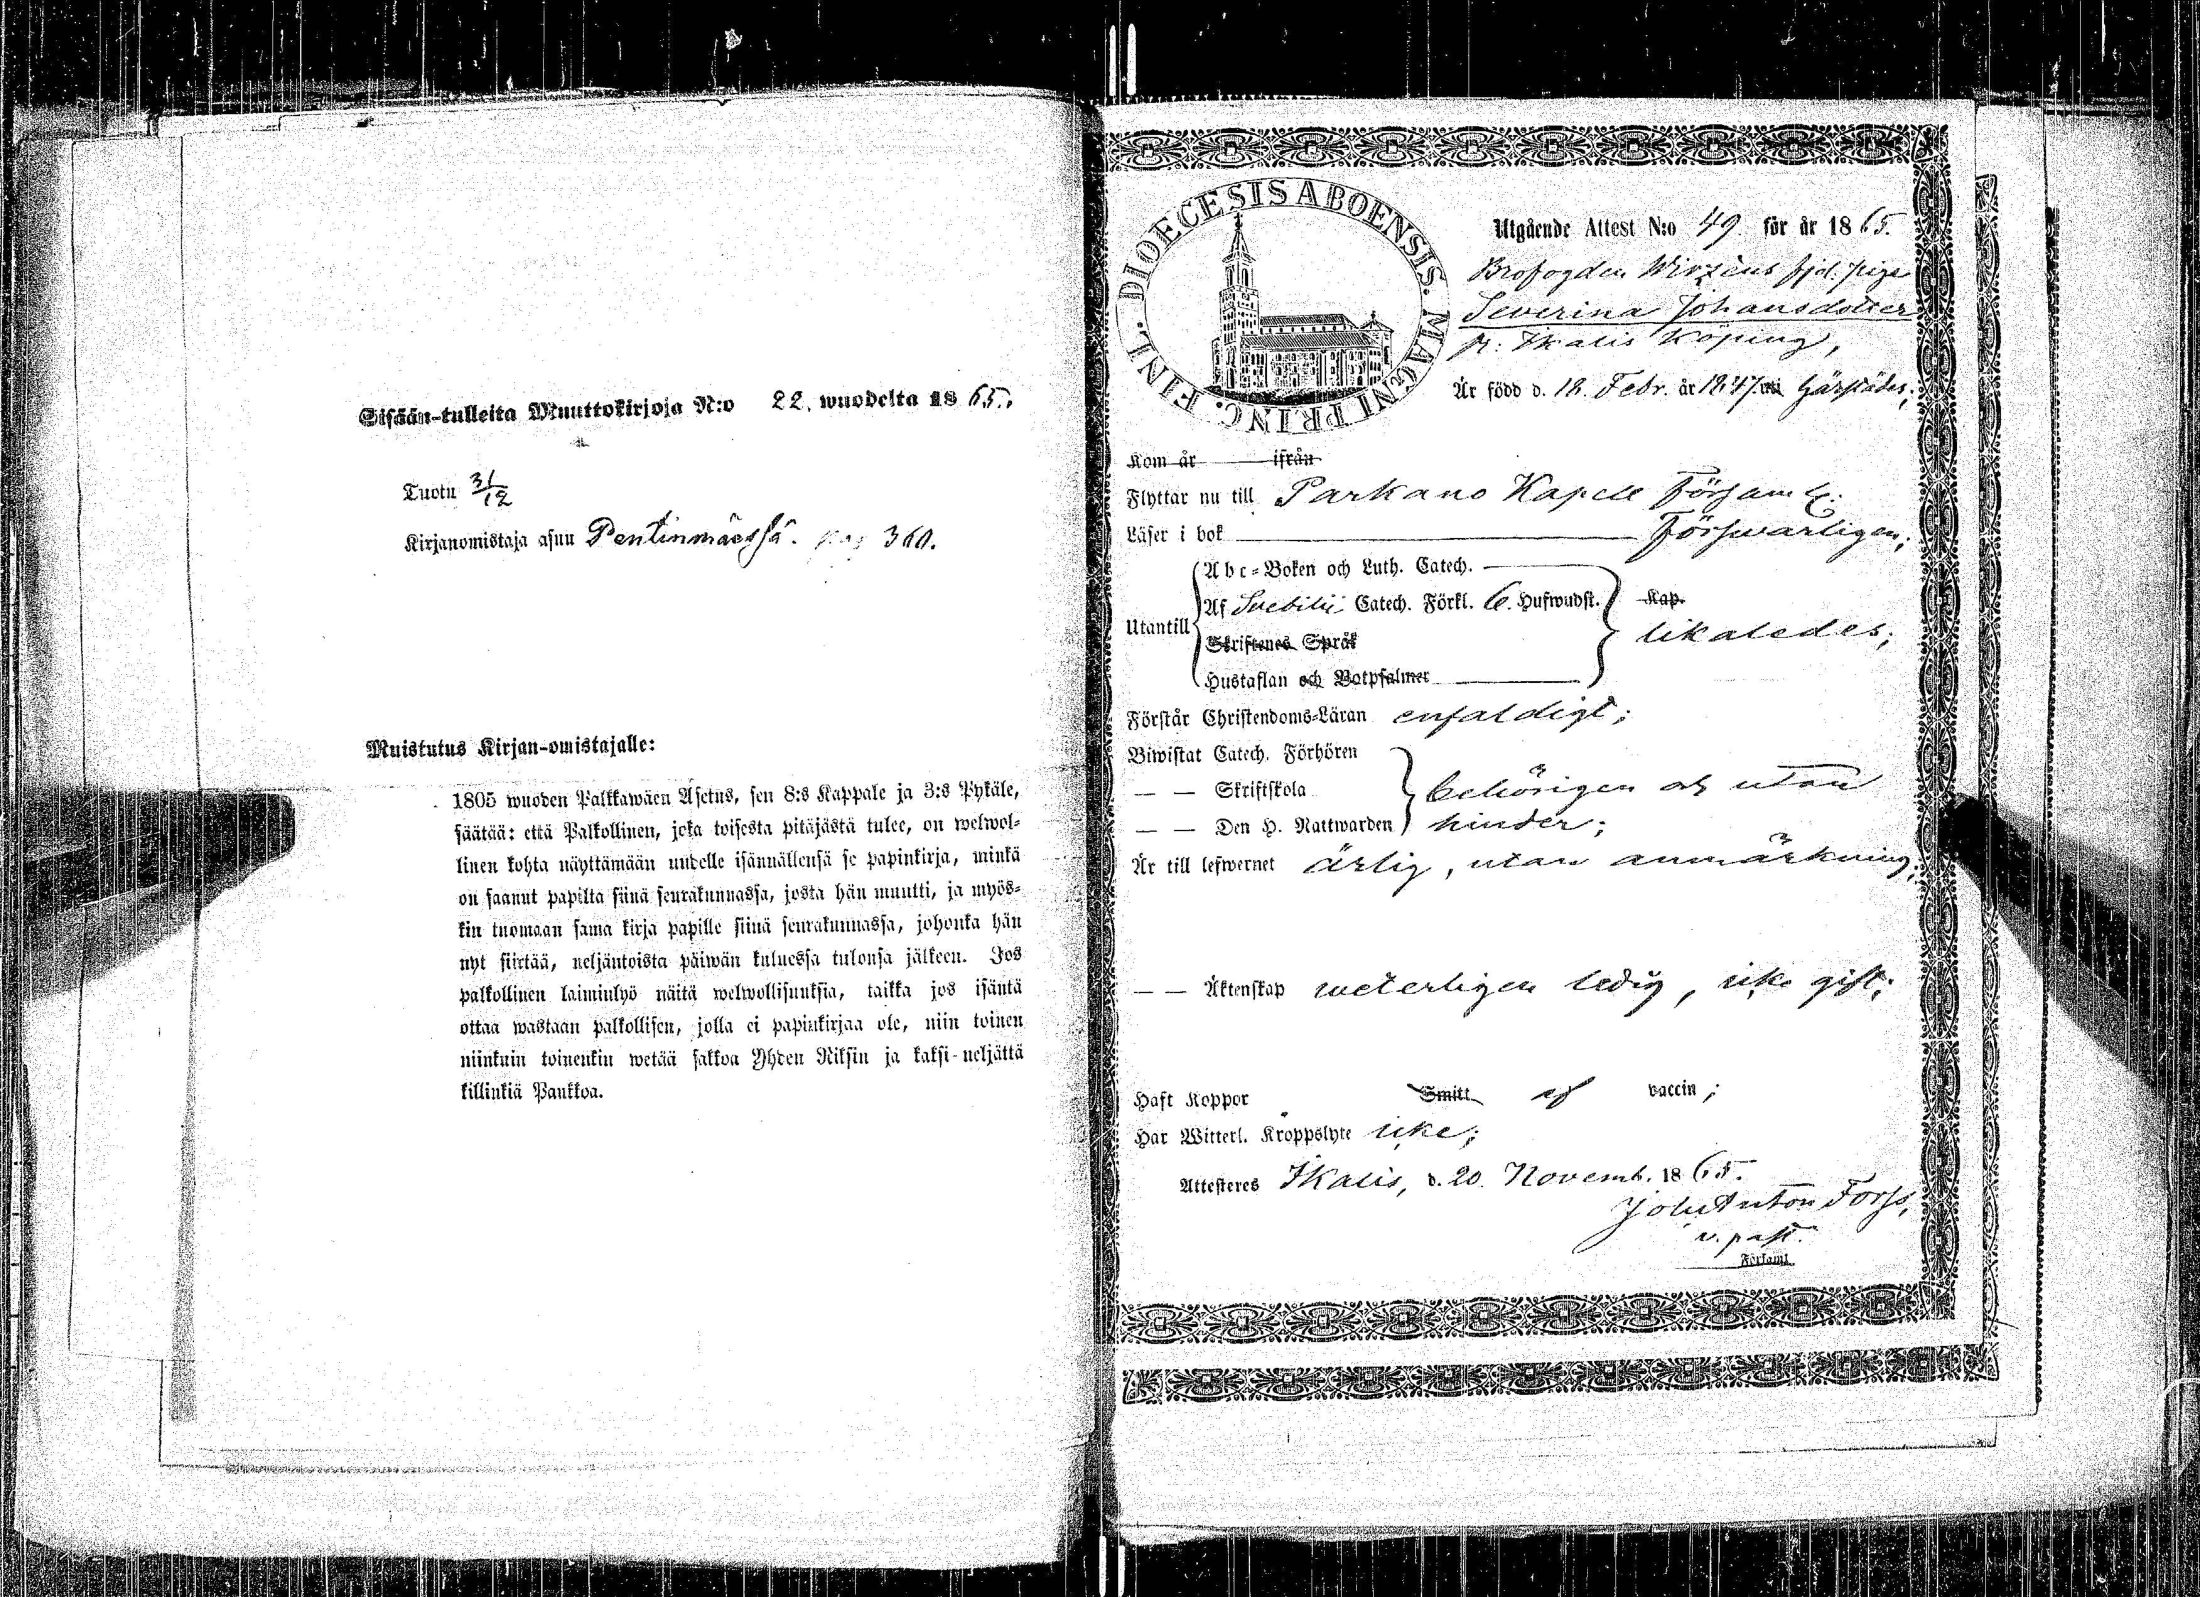 Sisään-tulleita Muuttokirjoja N:o 22. wuodelta 1865.
Tuotu 31/12
Kirjanomistaja asuu Pentinmäessä. pag 360.
Muistutus Kirjan-omistajalle:
1805 wuoden Palkkawäen Asetus, sen 8:s Kappale ja 3:s Pykäle,
säätää: että Palkollinen, joka toisesta pitäjästä tulee, on welwol-
linen kohta näyttämään uudelle isännällensä se papinkirja, minkä
on saanut papilta siinä seurakunnassa, josta hän muutti, ja myös-
kin tuomaan sama kirja papille siinä seurakunnassa, johonka hän
nyt siirtää, neljäntoista päiwän kuluessa tulonsa jälkeen. Jos
palkollinen laiminlyö näitä welwollisuuksia, taikka jos isäntä
ottaa wastaan palkollisen, jolla ei papinkirjaa ole, niin toinen
niinkuin toinenkin wetää sakkoa Yhden Riksin ja kaksi-neljättä
killinkiä Pankkoa.
DIOECESIS ABOENSIS. MAGNI PRINC. FINL.
Utgående Attest N:o 49 för år 1865.
Brofogden Wirzèns fjd. piga
Severina Johansdotter
fr: Ikalis Köping,
Är född d. 12. Febr. år 1847.
Kom år ifrån
Flyttar nu till Parkano Kapell Församl:
Läser i bok Förswarligen;
Utantill
Abc-Boken och Luth. Catech.
Af Svebilii Catech. Förkl. 6. Hufwudst. Kap.
likaledes;
Skriftenes Språk
Hustaflan och Botpsalmer
Förstår Christendoms-Läran enfaldigt;
Biwistat Catech. Förhören
— — Skriftskola behörigen och utan
— — Den H. Nattwarden hinder;
Är till lefwernet ärlig, utan anmärkning;
— — Äktenskap weterligen ledig, icke gift;
Haft Koppor Smitt af vaccin;
Har Witterl. Kroppslyte icke;
Attesteres Ikalis, d. 20. Novemb. 1865.
Joh. Anton Forss,
v. past.
Församl.